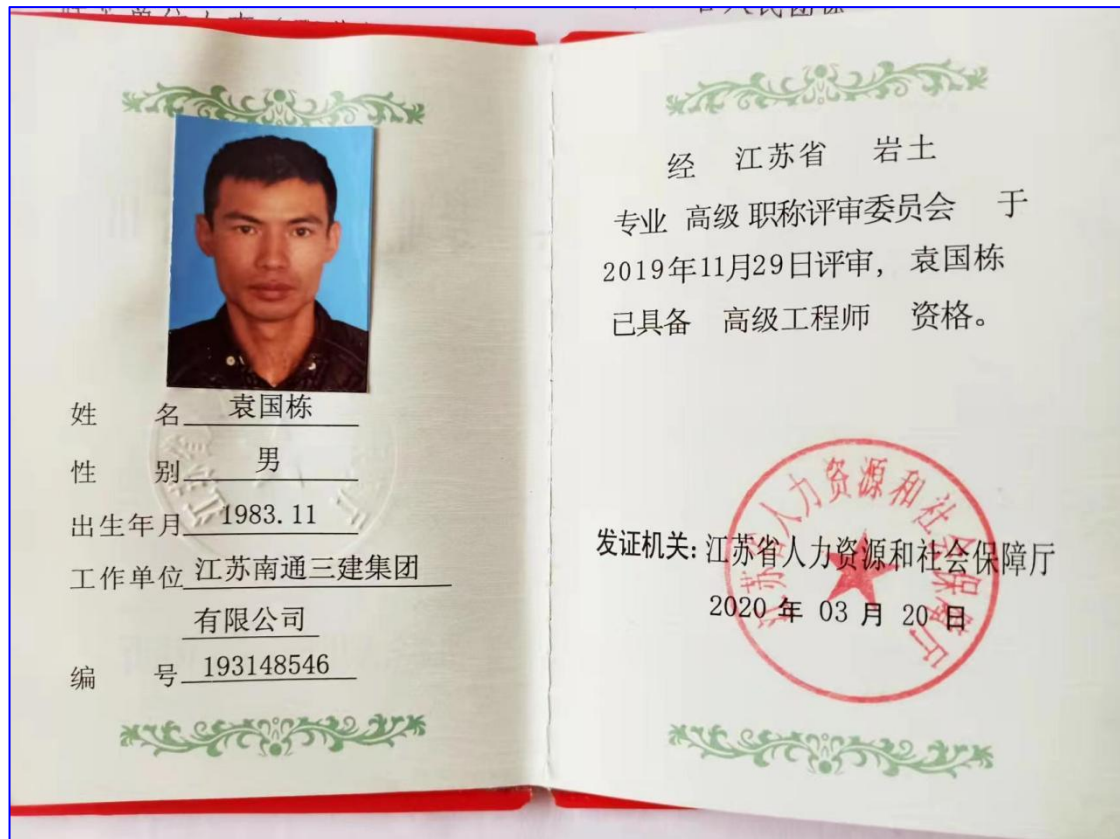 姓 名 袁国栋
性 别 男
出生年月 1983.11
工作单位 江苏南通三建集团
有限公司
编 号 193148546
经 江苏省 岩土
专业 高级 职称评审委员会 于
2019年11月29日评审， 袁国栋
已具备 高级工程师 资格。
江苏省人力资源和社会保障厅
发证机关: 江苏省人力资源和社会保障厅
2020 年 03 月 20 日